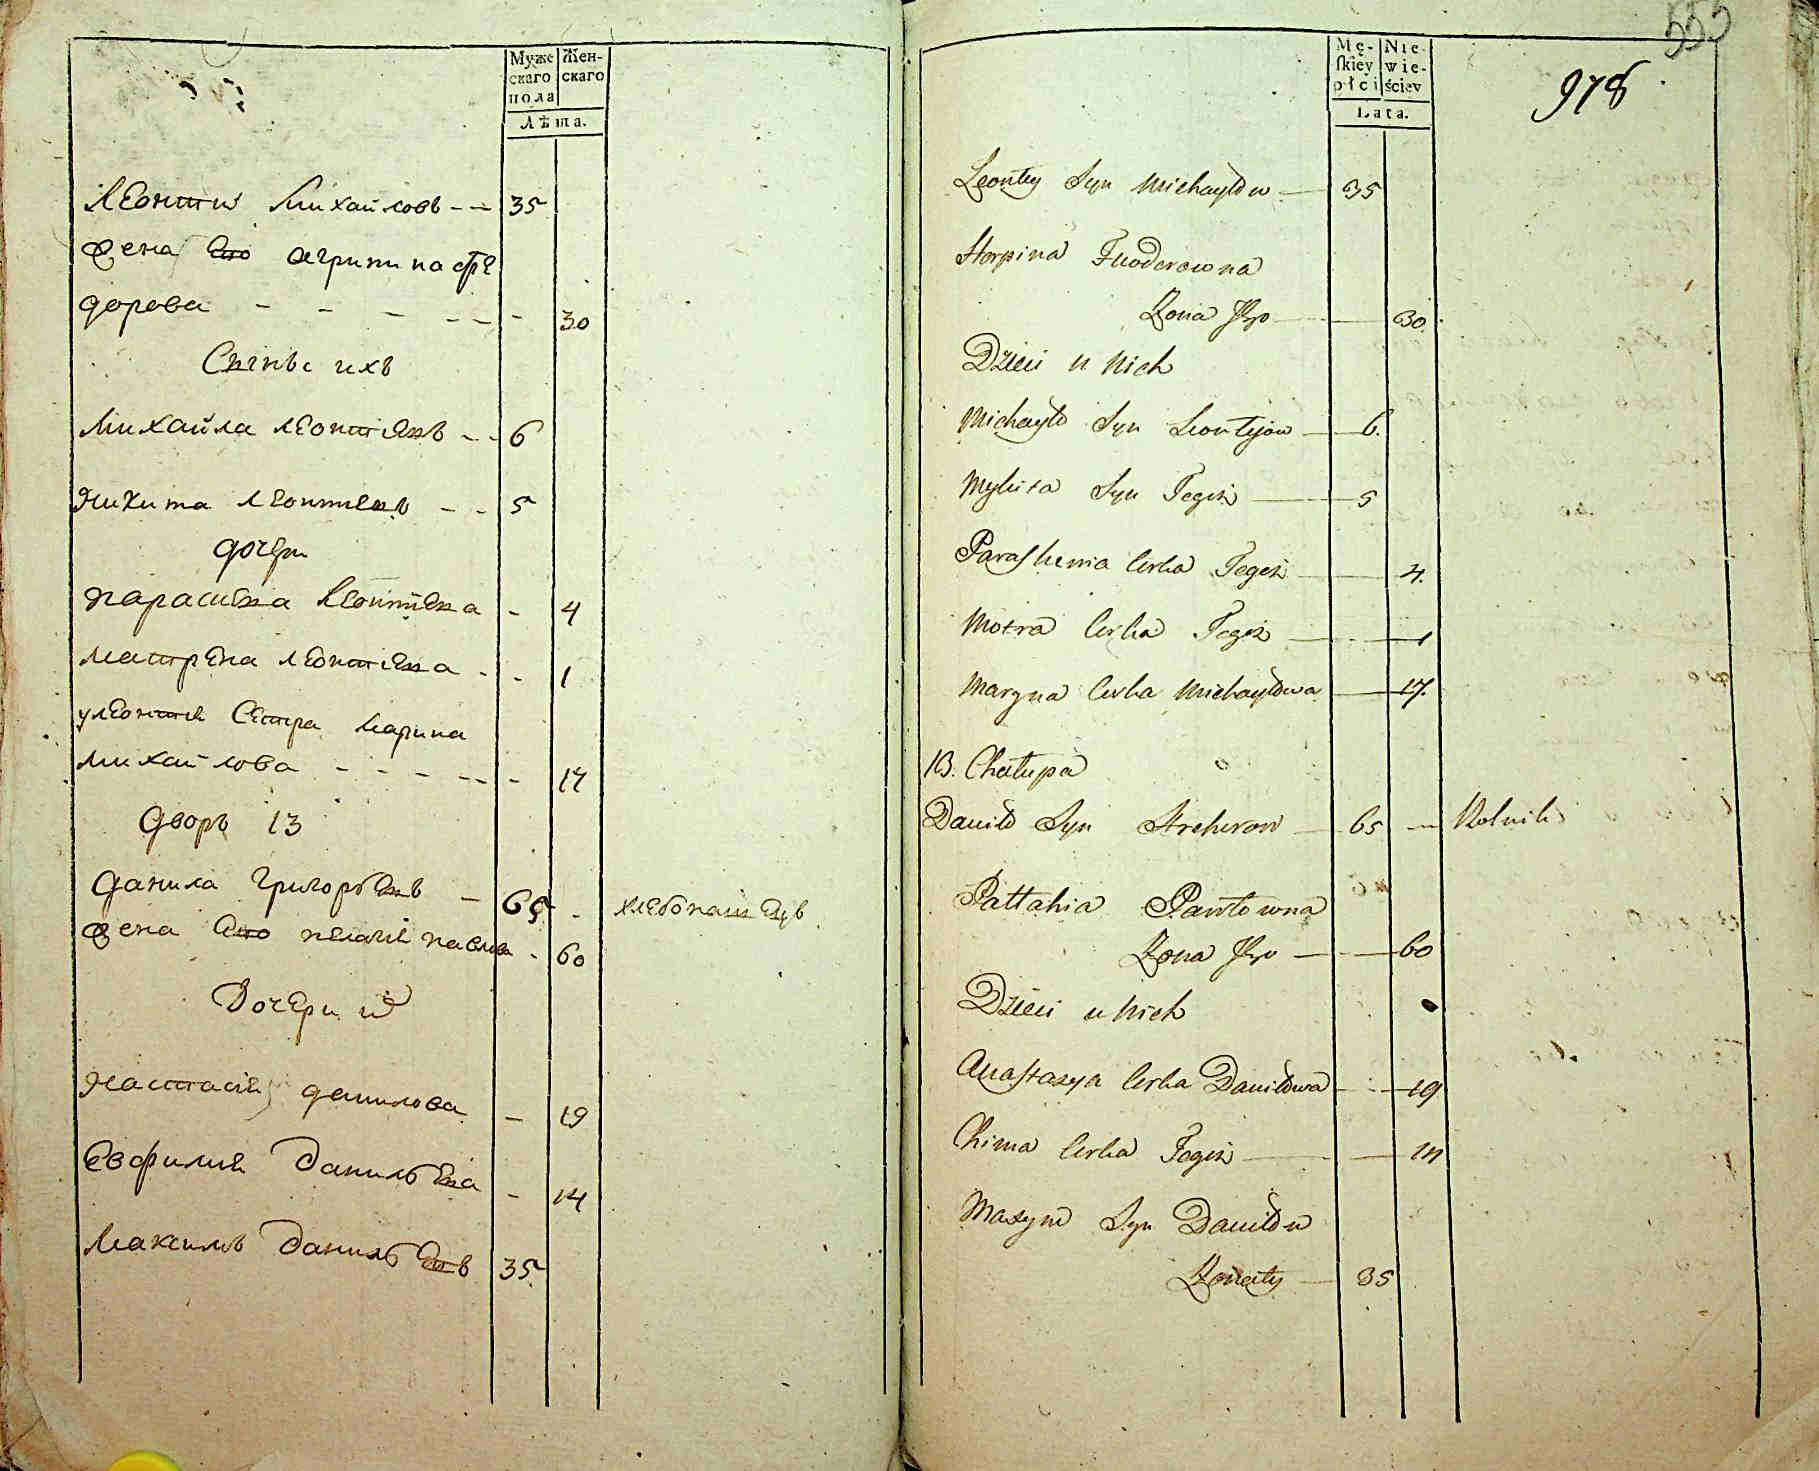 Муже
скаго
пола
Жен-
скаго
Лѣта.
Леонтий Михайловъ - - 35
жена Его агрипина фе
дорова - - - - - - 30
Сыны ихъ
Михайла леонтиевъ - - 6
Никита леонтиевъ - - 5
дочери
парасиева Леонтиева - 4
матрена леонтиева - - 1
у леонтия Сестра Марина
Михайлова - - - - - - 17
дворъ 13
данила григорьевъ - 65 - хлебопашецъ
жена Его пелагия павлова - 60
Дочери и
Настасия данилова - 19
Евфимия Данильева - 14
Максимъ Данильевъ 35
555
978
Mę-
skiey
płci
Nie
wie-
ściey
Lata.
Leontey Syn Michayłow 35
Horpina Fuoderowna
Żona Jego 30
Dzieci u Nich
Michayło Syn Leontyow 6.
Mykita Syn Tegoż 5
Paraskiewia Corka Tegoż 4.
Motra Corka Tegoż 1
Maryna Corka Michayłowa 17.
13. Chałupa
Daniło Syn Hrehorow 65 - Rolnik
Pallahia Pawłowna
Żona Jego 60
Dzieci u Nich
Anastazya Corka Daniłowa 19
Chima Corka Tegoż 14
Maxym Syn Daniłow
Żonaty 35